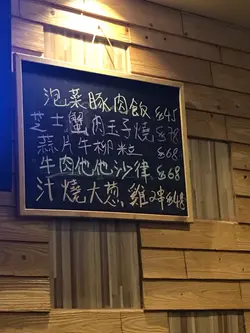 泡菜豚肉飯 $45
芝士蟹肉玉子燒 $78
蒜片牛柳粒 $68
牛肉他他沙律 $68
汁燒大蔥雞串 $48